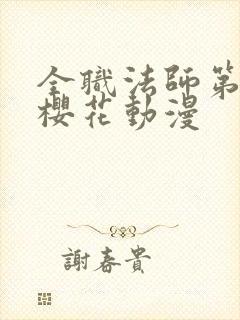 全職法師第
櫻花動漫
謝春貴